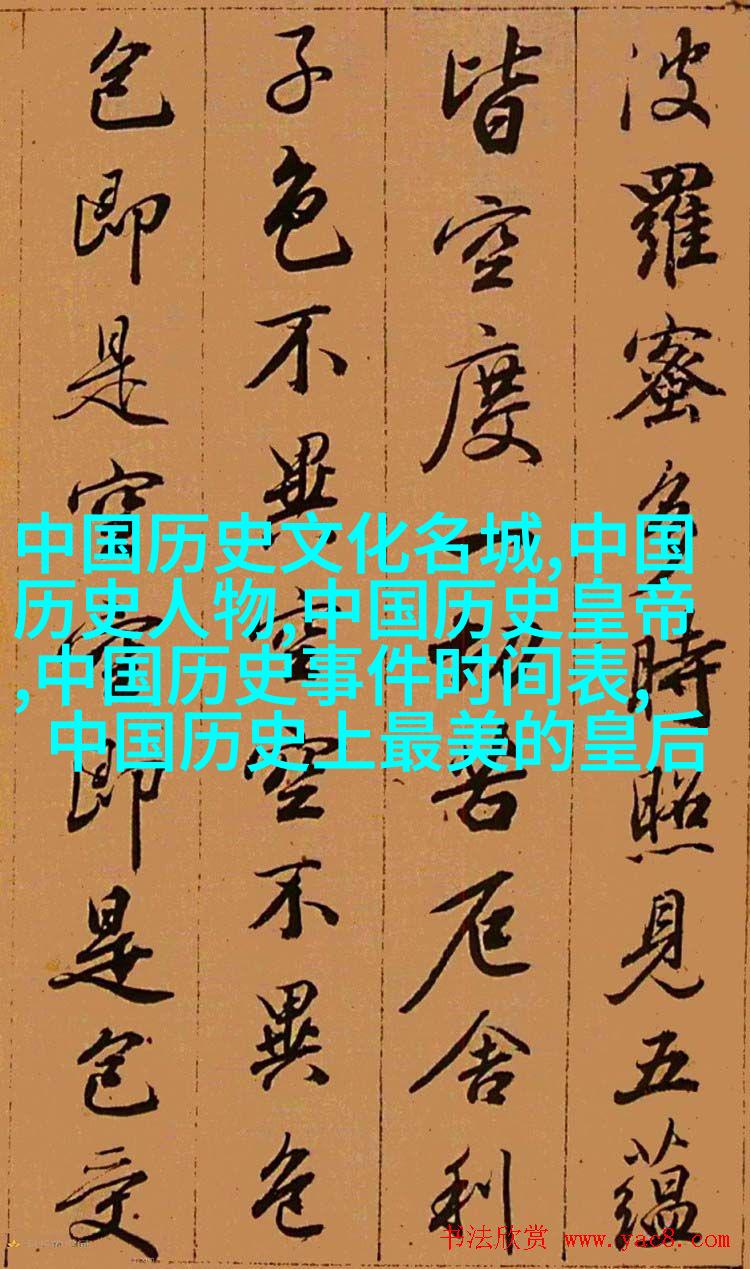 波羅蜜多時照見五蘊
皆空度一切苦厄舍利
子色不異空空不異色
色即是空空即是色受
中国历史文化名城,中国
历史人物,中国历史皇帝
,中国历史事件时间表,
中国历史上最美的皇后
书法欣赏 www.yac8.com